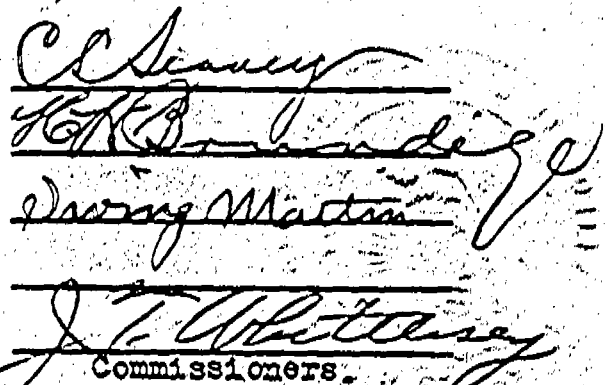 C C Seavey
H H Brundige
Irving Martin
J T Whittlesey
Commissioners.